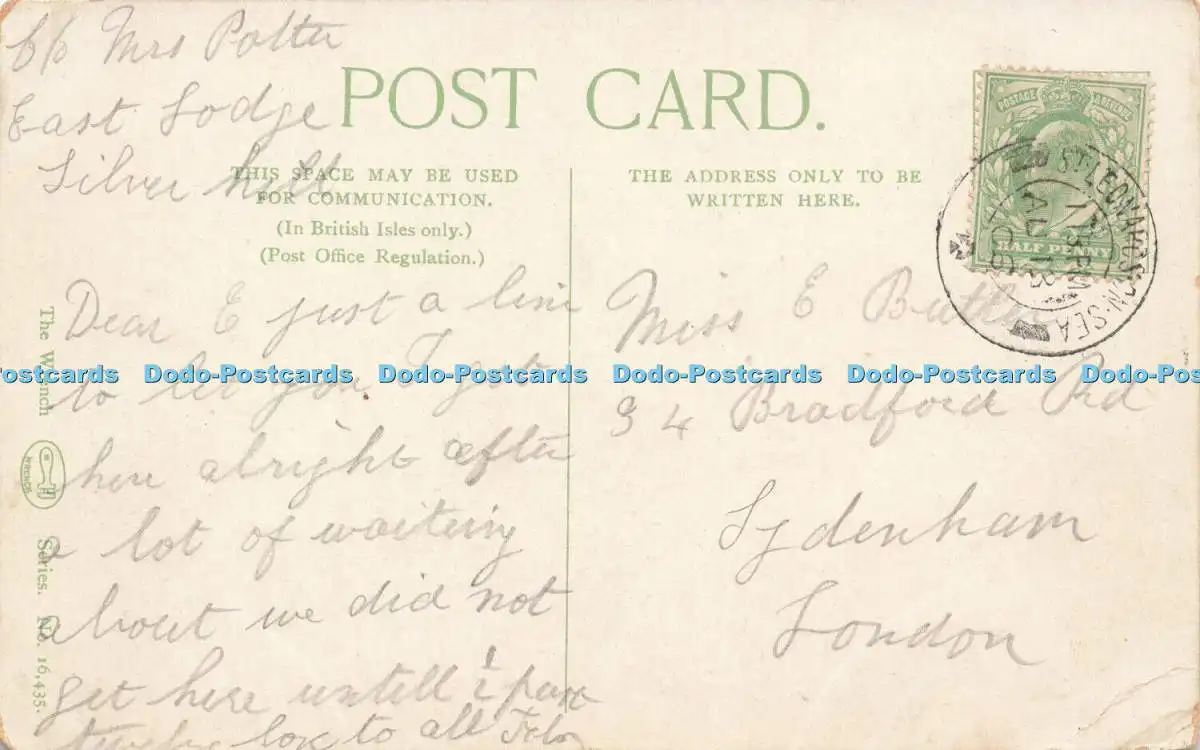 c/o Mrs Potter
East Lodge
Silver hill
POST CARD.
THIS SPACE MAY BE USED
FOR COMMUNICATION.
(In British Isles only.)
(Post Office Regulation.)
THE ADDRESS ONLY TO BE
WRITTEN HERE.
POSTAGE REVENUE
HALF PENNY
ST LEONARDS-ON-SEA
Dear E just a line
to let you I got
here alright after
a lot of waiting
about we did not
get here untill ½ past
twelve love to all
Miss E Butler
94 Bradford Rd
Sydenham
London
The Wrench
WRENCH
Series. No. 16,435.
Dodo-Postcards Dodo-Postcards Dodo-Postcards Dodo-Postcards